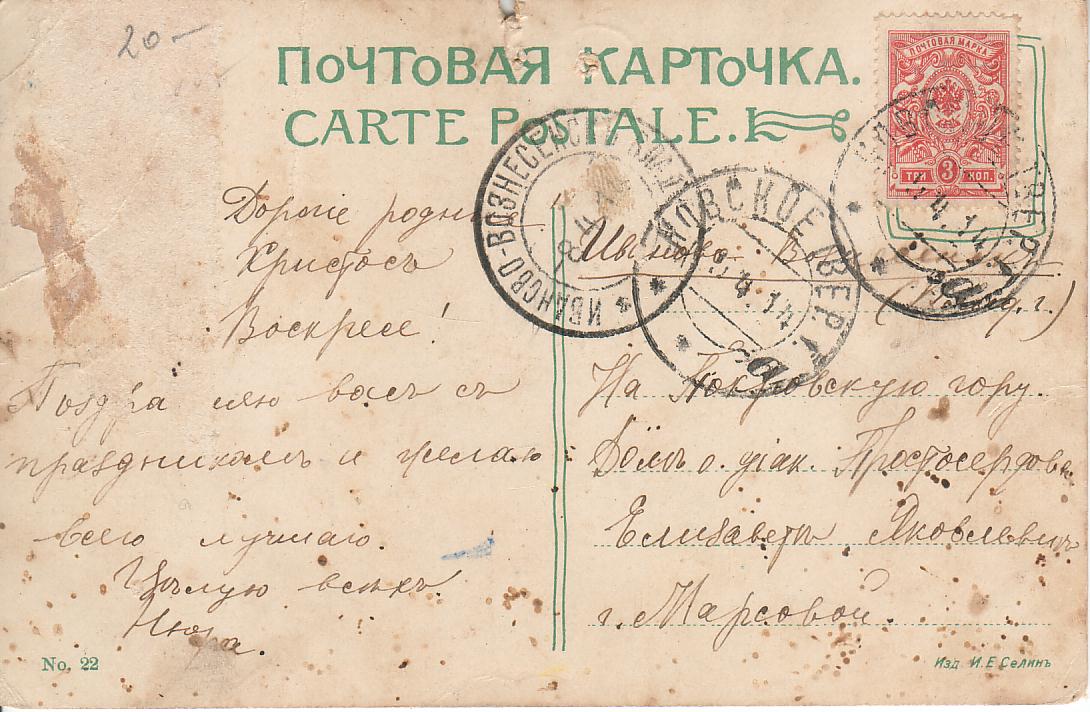 20—
ПОЧТОВАЯ КАРТОЧКА.
CARTE POSTALE.
ПОЧТОВАЯ МАРКА
ТРИ 3 КОП.
ИВАНОВО-ВОЗНЕСЕНСКЪ ВЛАД.
8 4 14
НОВСКОЕ ТВЕР. Г.
3 4 14
ТВЕР. Г.
4.14
Дорогіе родны
Христосъ
Воскресе!
Поздравляю васъ съ
праздникомъ и желаю
всего лучшаго.
Цѣлую всѣхъ
Нюра.
Иваново-
г.)
На Покровскую гору.
Домъ о. діак. Простосердова
Елизаветѣ Яковлевнѣ
г. Марсовой.
No. 22
Изд. И.Е Селинъ